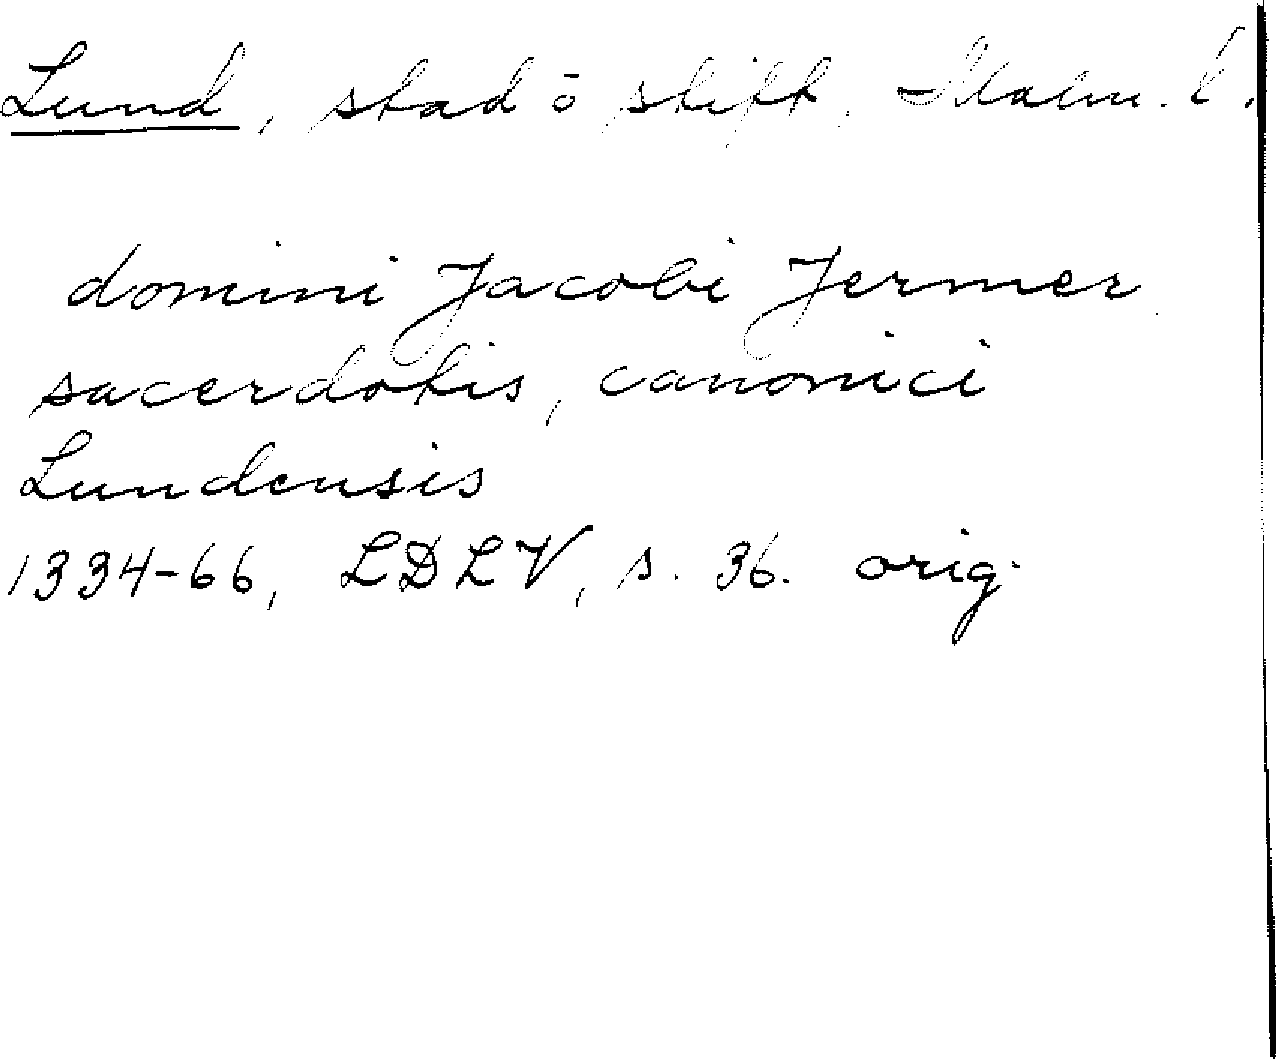 Lund, stad o stift. Malm. l.
domini Jacobi Jermer
sacerdotis, canonici
Lundensis
1334-66, LDLV, s. 36. orig.